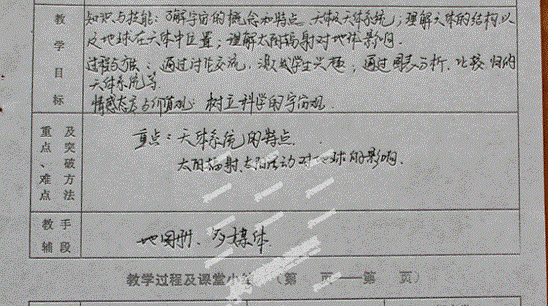 教学目标
知识与技能：了解宇宙的概念和特点 天体及天体系统；理解天体的结构以
及地球在天体中位置；理解太阳辐射对地球影响.
过程与方法：通过讨论交流，激发学生兴趣；通过图表分析、比较归纳
天体系统等
情感态度与价值观：树立科学的宇宙观.
重点、难点 及突破方法
重点：天体系统的特点.
太阳辐射、太阳活动对地球的影响.
教辅 手段
地图册、多媒体
教学过程及课堂小结（第 页——第 页）